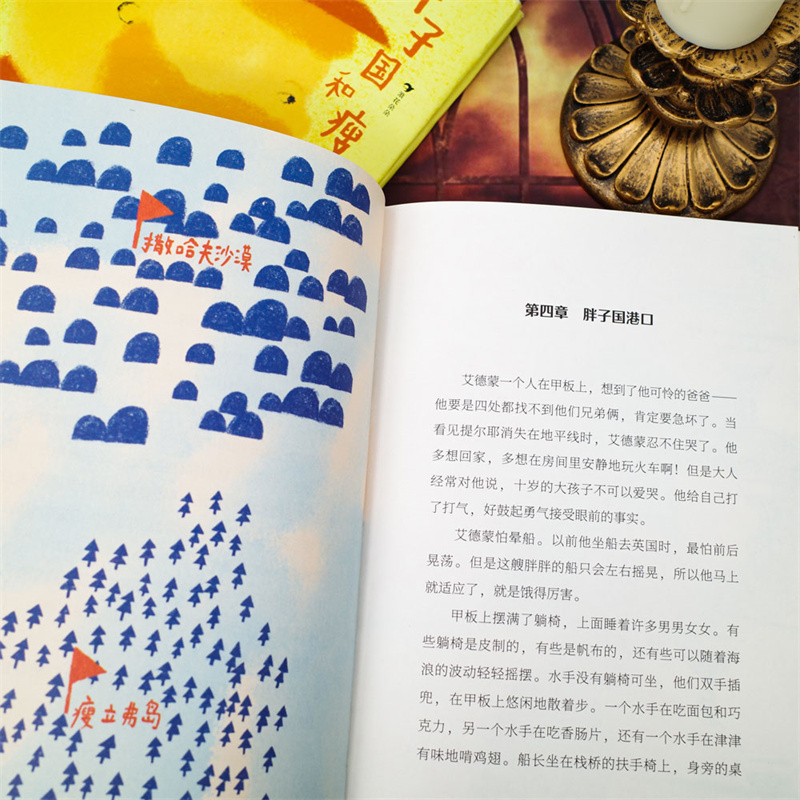 胖子国
和瘦
浪花朵朵
撒哈夫沙漠
瘦立弗岛
第四章　胖子国港口
艾德蒙一个人在甲板上，想到了他可怜的爸爸——
他要是四处都找不到他们兄弟俩，肯定要急坏了。当
看见提尔耶消失在地平线时，艾德蒙忍不住哭了。他
多想回家，多想在房间里安静地玩火车啊！但是大人
经常对他说，十岁的大孩子不可以爱哭。他给自己打
了打气，好鼓起勇气接受眼前的事实。
艾德蒙怕晕船。以前他坐船去英国时，最怕前后
晃荡。但是这艘胖胖的船只会左右摇晃，所以他马上
就适应了，就是饿得厉害。
甲板上摆满了躺椅，上面睡着许多男男女女。有
些躺椅是皮制的，有些是帆布的，还有些可以随着海
浪的波动轻轻摇摆。水手没有躺椅可坐，他们双手插
兜，在甲板上悠闲地散着步。一个水手在吃面包和巧
克力，另一个水手在吃香肠片，还有一个水手在津津
有味地啃鸡翅。船长坐在栈桥的扶手椅上，身旁的桌